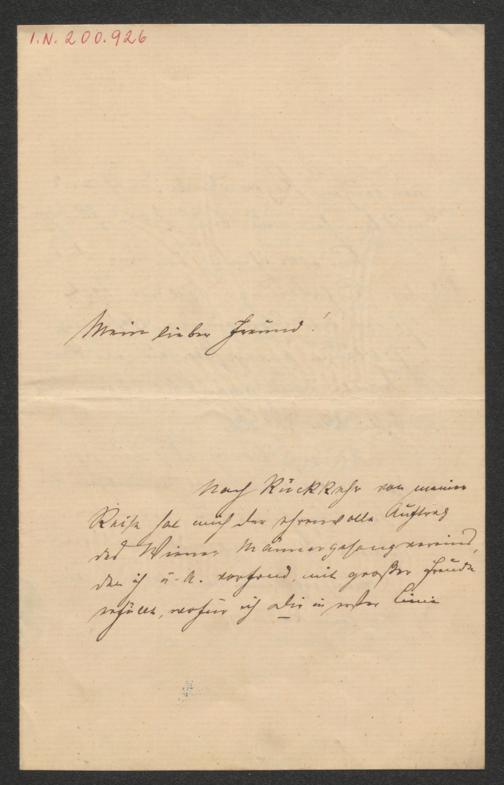 I.N. 200.926
Mein lieber Freund!
Nach Rückkehr von meiner
Reise hat mich der ehrenvolle Auftrag
des Wiener Männergesangvereines,
den ich u. A. vorfand, mit großer Freude
erfüllt, wofür ich Dir in erster Linie